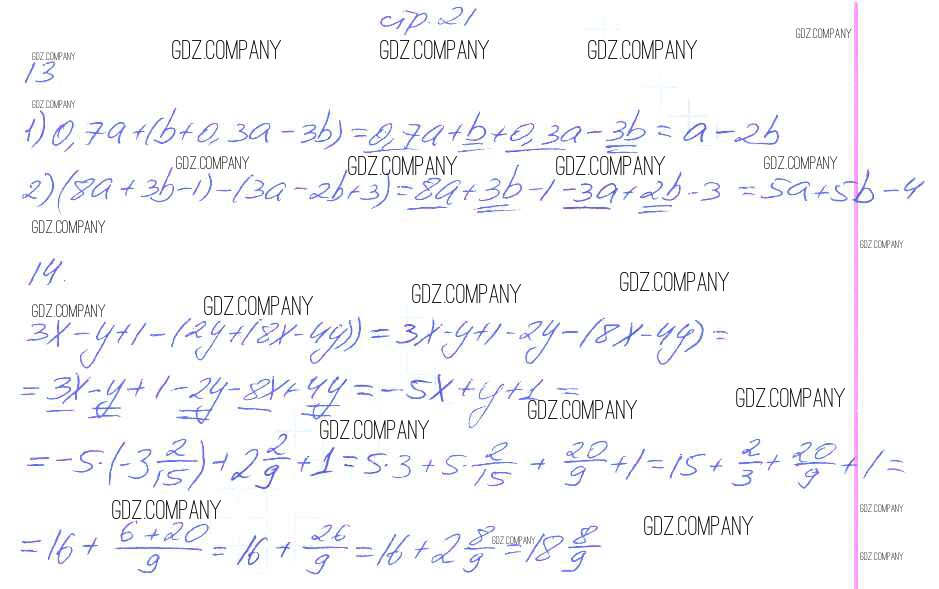 стр. 21
GDZ.COMPANY GDZ.COMPANY GDZ.COMPANY GDZ.COMPANY
GDZ.COMPANY
13
GDZ.COMPANY
1) 0,7a+(b+0,3a-3b)=0,7a+b+0,3a-3b=a-2b
GDZ.COMPANY GDZ.COMPANY GDZ.COMPANY GDZ.COMPANY
2) (8a+3b-1)-(3a-2b+3)=8a+3b-1-3a+2b-3=5a+5b-4
GDZ.COMPANY
GDZ.COMPANY
14.
GDZ.COMPANY GDZ.COMPANY GDZ.COMPANY GDZ.COMPANY
3x-y+1-(2y+(8x-4y))=3x-y+1-2y-(8x-4y)=
=3x-y+1-2y-8x+4y=-5x+y+1=
GDZ.COMPANY GDZ.COMPANY GDZ.COMPANY
=-5·(-3 2/15)+2 2/9+1=5·3+5·2/15+20/9+1=15+2/3+20/9+1=
GDZ.COMPANY GDZ.COMPANY GDZ.COMPANY
=16+(6+20)/9=16+26/9=16+2 8/9=18 8/9
GDZ.COMPANY GDZ.COMPANY